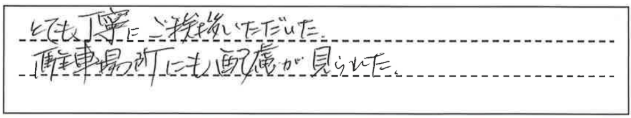 とても丁寧にご挨拶いただいた.
駐車場所にも配慮が見られた.